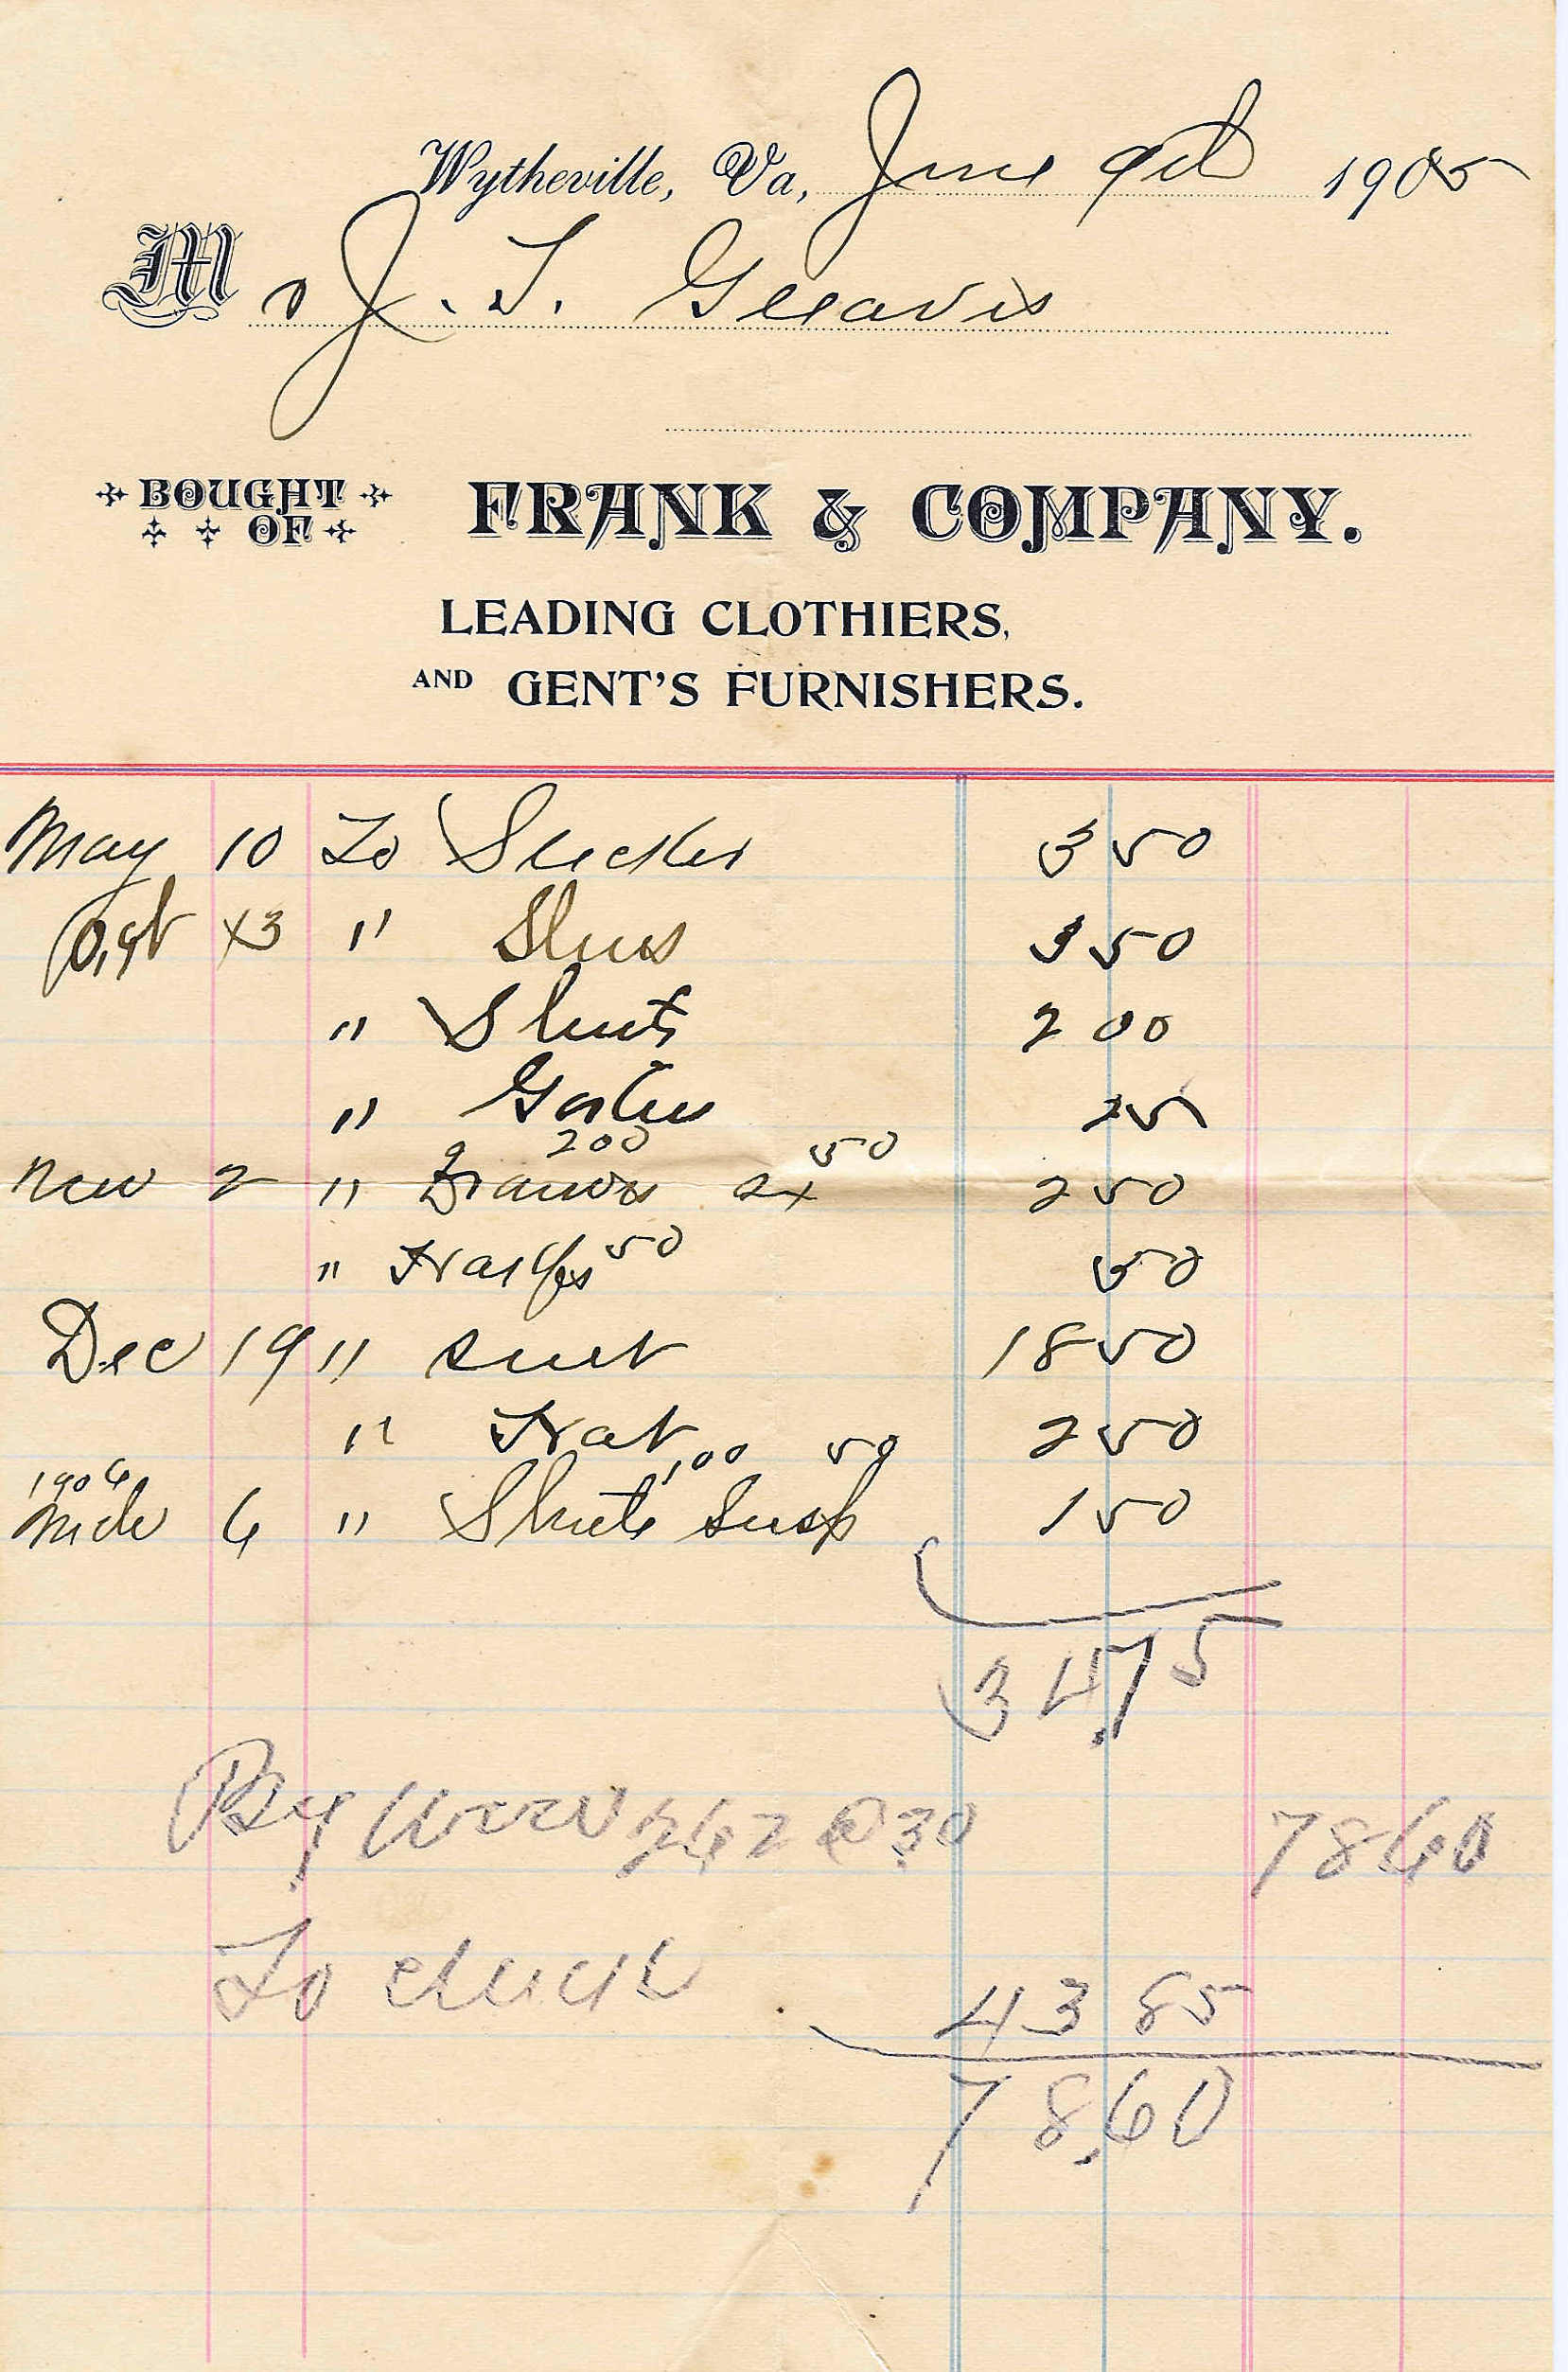 Wytheville, Va, June 9th 1905
Mr J. T. Gleaves
BOUGHT OF FRANK & COMPANY.
LEADING CLOTHIERS,
AND GENT'S FURNISHERS.
May 10 To Slicker 3 50
Oct 23 " Shoes 3 50
" Shirts 2 00
" Garters 25
200 50
Nov 2 " Drawers 2 50
" 50 50
Dec 19 " suit 18 50
" Hat 2 50
1906 1 00 50
Mch 6 " Shirts Susp 1 50
34.75
By 262 @ 30 78 60
To check 43 85
78.60